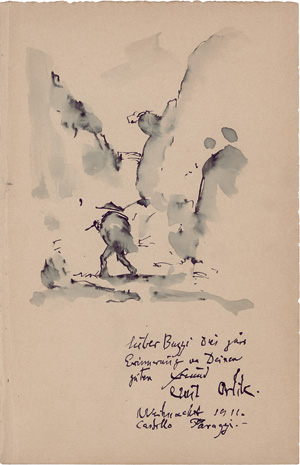 lieber Buzzi Dies zur
Erinnerung an Deinen
guten Freund
Emil Orlik.
Weihnacht 1911.-
Castello Paraggi.-